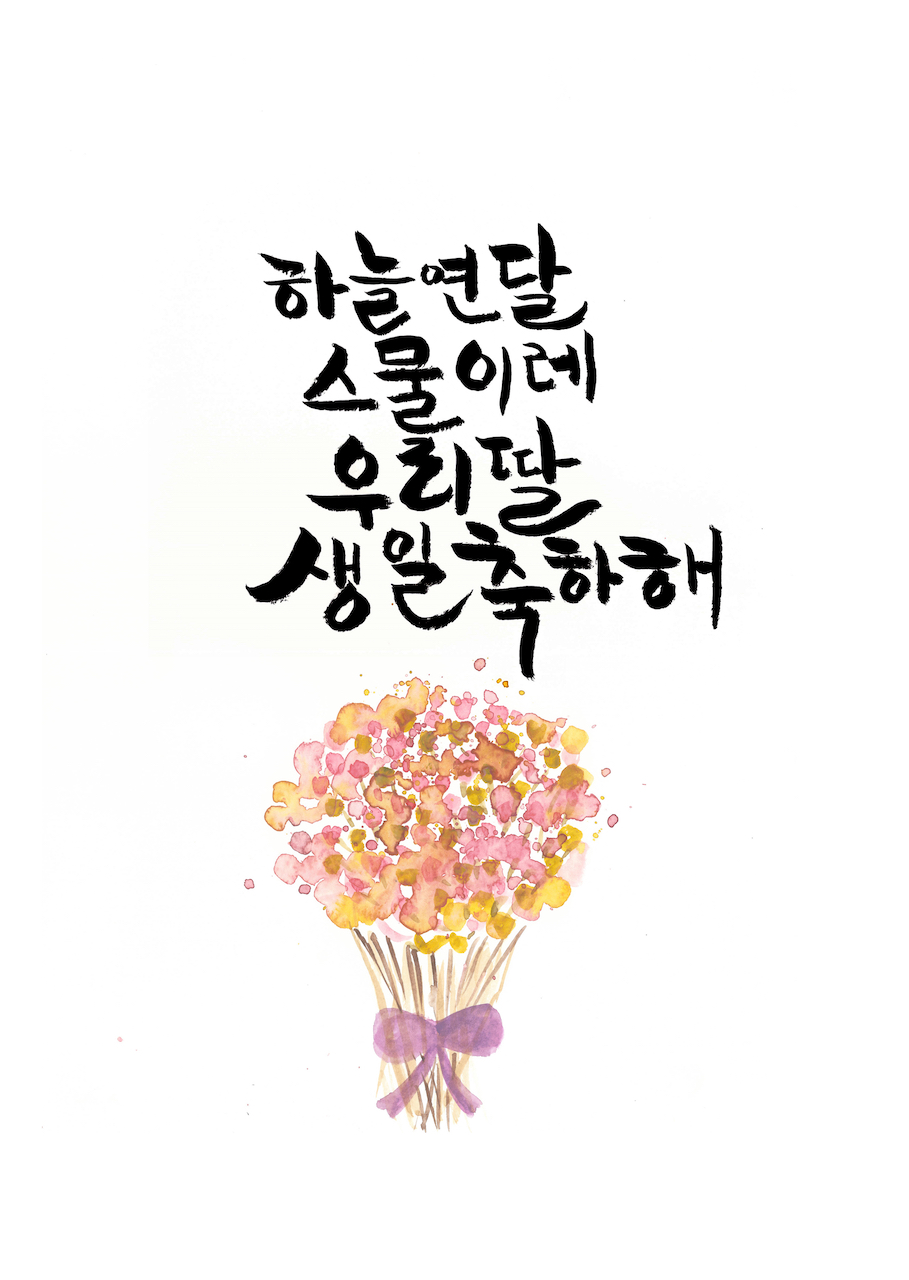 하늘연달
스물이레
우리딸
생일축하해